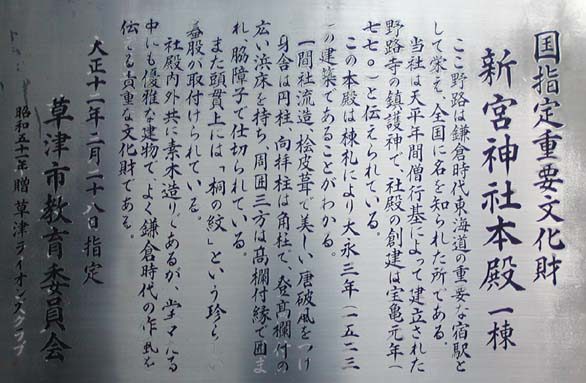 国指定重要文化財
新宮神社本殿 一棟
ここ野路は鎌倉時代東海道の重要な宿駅と
して栄え、全国に名を知られた所である。
当社は天平年間僧行基によって建立された
野路寺の鎮護神で、社殿の創建は宝亀元年(
七七〇)と伝えられている。
この本殿は棟札により大永三年(一五二三
の建築であることがわかる。
一間社流造、桧皮葺で美しい唐破風をつけ
身舎は円柱、向拝柱は角柱で、登高欄付の
広い浜床を持ち、周囲三方は高欄付縁で囲ま
れ、脇障子で仕切られている。
また頭貫上には「桐の紋」という珍らしい
蟇股が取付けられている。
社殿内外共に素木造りであるが、堂々たる
中にも優雅な建物で、よく鎌倉時代の作風を
伝える貴重な文化財である。
大正十一年二月二十八日指定
草津市教育委員会
昭和五十年 贈 草津ライオンズクラブ